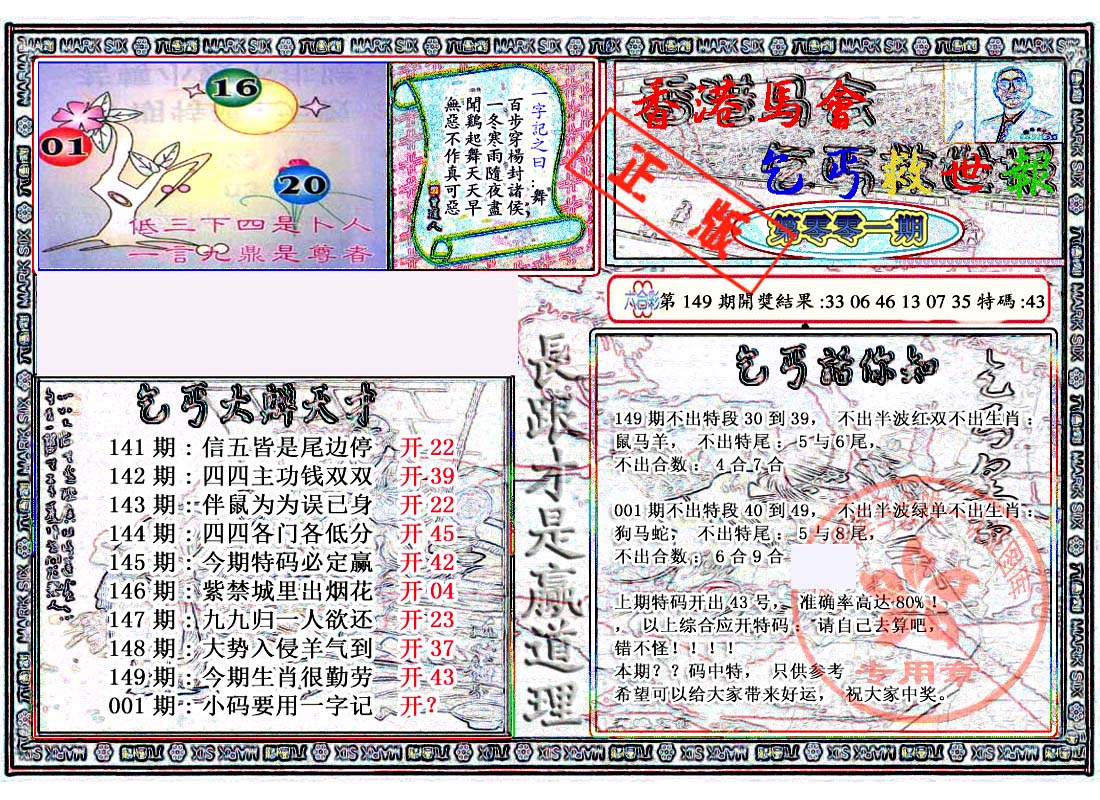 16
01
20
低三下四是卜人
一言九鼎是尊者
一字記之曰：舞
百步穿楊封諸侯
一冬寒雨隨夜盡
聞鷄起舞天天早
無惡不作真可惡
香港馬會
乞丐救世報
第零零一期
正版
六合彩第 149 期開獎結果 :33 06 46 13 07 35 特碼 :43
長跟才是贏道理
141 期：信五皆是尾边停 开 22
142 期：四四主功钱双双 开 39
143 期：伴鼠为为误己身 开 22
144 期：四四各门各低分 开 45
145 期：今期特码必定赢 开 42
146 期：紫禁城里出烟花 开 04
147 期：九九归一人欲还 开 23
148 期：大势入侵羊气到 开 37
149 期：今期生肖很勤劳 开 43
001 期：小码要用一字记 开？
乞丐話你知
149 期不出特段 30 到 39， 不出半波红双不出生肖：
鼠马羊， 不出特尾：5 与 6 尾，
不出合数：4 合 7 合
001 期不出特段 40 到 49， 不出半波绿单不出生肖：
狗马蛇， 不出特尾：5 与 8 尾，
不出合数：6 合 9 合
上期特码开出 43 号， 准确率高达 80%！
， 以上综合应开特码：请自己去算吧，
错不怪！！！！
本期？？码中特， 只供参考
希望可以给大家带来好运， 祝大家中奖。
专用章
MARK SIX